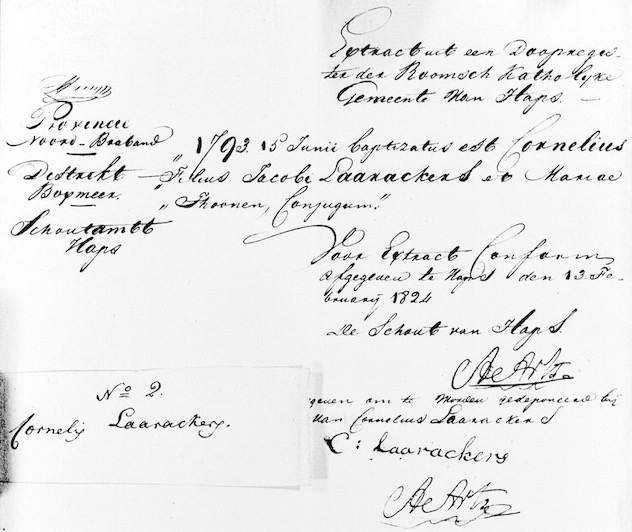 Extract uit een Doopregis-
ter der Roomsch Katholyke
Gemeente van Haps.
Provincie
Noord-Braband
Destrekt
Boxmeer.
Schoutambt
Haps
„ 1793. 15 Junii baptizatus est Cornelius
„ Filius Jacobi Laarackers et Mariae
„ Thoonen, Conjugum."
Voor Extract Conform
afgegeven te Haps den 13. Fe-
bruarij 1824
De Schout van Haps.
AeArtz
No 2.
Cornelis Laarackers.
geven om te worden gedeponeerd bij
van Cornelius Laarackers
C: Laarackers
AeArtz